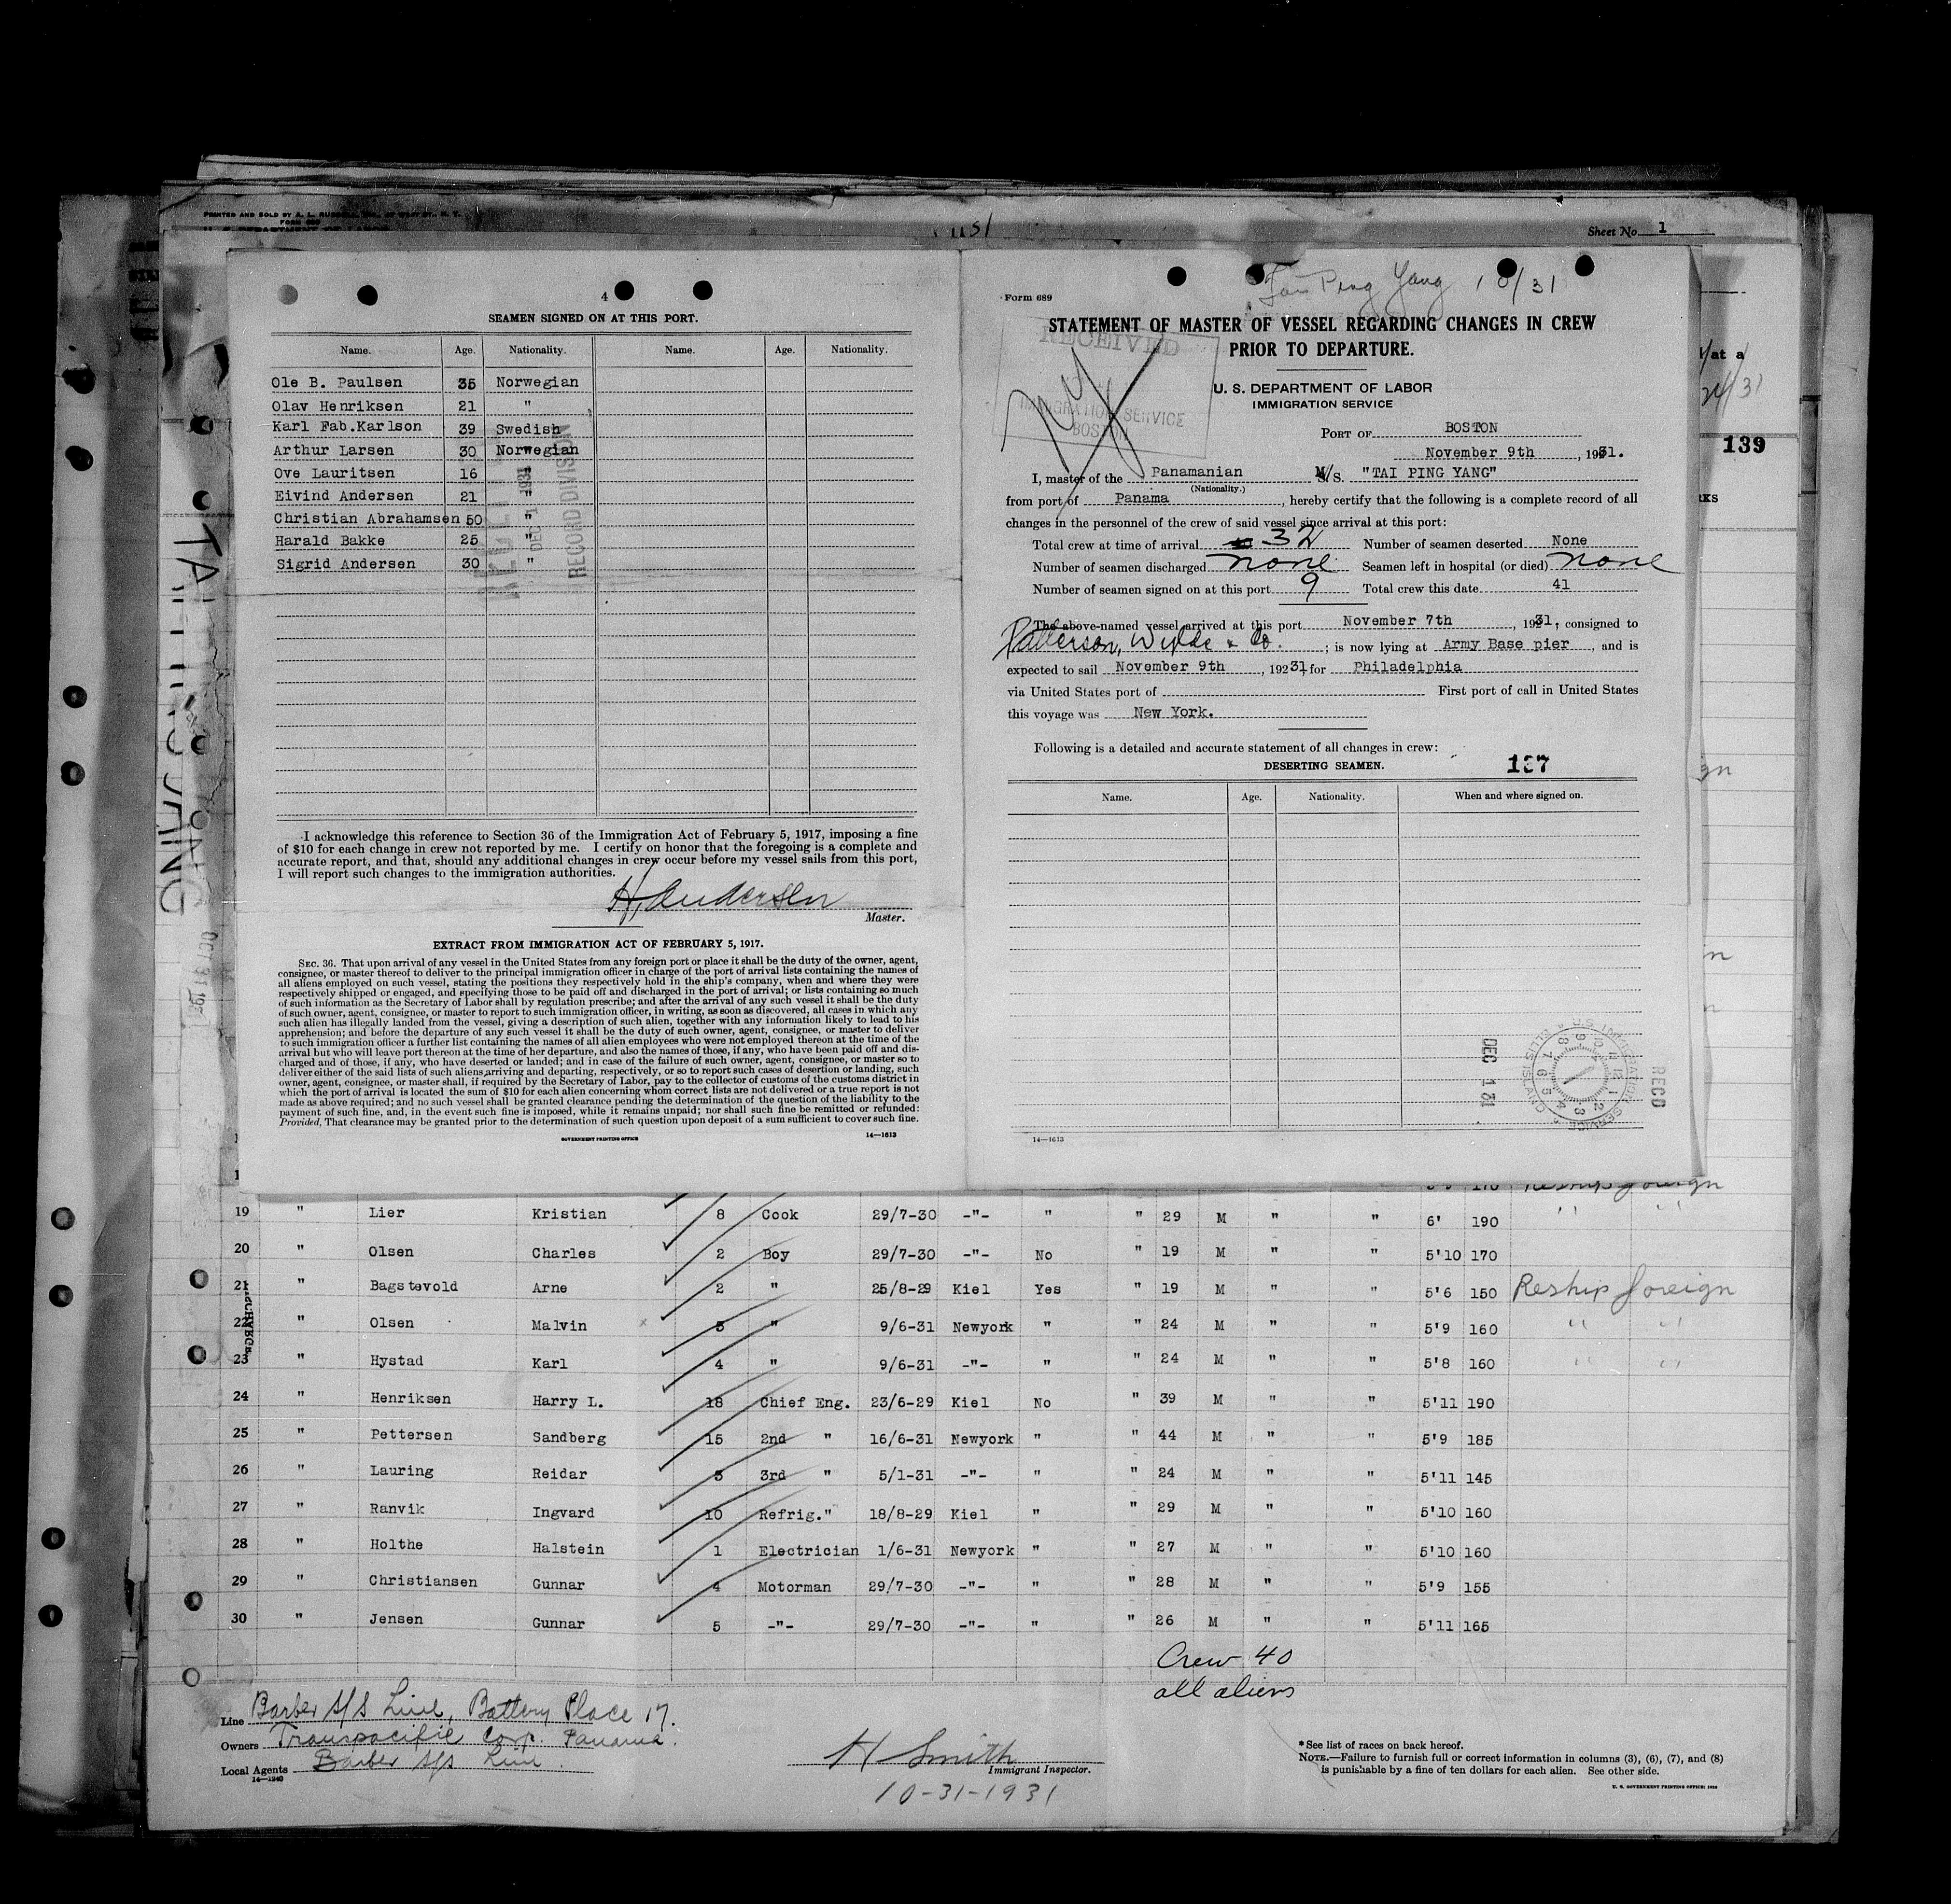 PRINTED AND SOLD BY A. L.
FORM 689
Sheet No. 1
4
SEAMEN SIGNED ON AT THIS PORT.
Name. Age. Nationality. Name. Age. Nationality.
Ole B. Paulsen 35 Norwegian
Olav Henriksen 21 "
Karl Fab.Karlson 39 Swedish
Arthur Larsen 30 Norwegian
Ove Lauritsen 16 "
Eivind Andersen 21 "
Christian Abrahamsen 50 "
Harald Bakke 25 "
Sigrid Andersen 30 "
DEC 1 1931
RECORD DIVISION
I acknowledge this reference to Section 36 of the Immigration Act of February 5, 1917, imposing a fine
of $10 for each change in crew not reported by me. I certify on honor that the foregoing is a complete and
accurate report, and that, should any additional changes in crew occur before my vessel sails from this port,
I will report such changes to the immigration authorities.
H. Andersen
Master.
EXTRACT FROM IMMIGRATION ACT OF FEBRUARY 5, 1917.
SEC. 36. That upon arrival of any vessel in the United States from any foreign port or place it shall be the duty of the owner, agent,
consignee, or master thereof to deliver to the principal immigration officer in charge of the port of arrival lists containing the names of
all aliens employed on such vessel, stating the positions they respectively hold in the ship's company, when and where they were
respectively shipped or engaged, and specifying those to be paid off and discharged in the port of arrival; or lists containing so much
of such information as the Secretary of Labor shall by regulation prescribe; and after the arrival of any such vessel it shall be the duty
of such owner, agent, consignee, or master to report to such immigration officer, in writing, as soon as discovered, all cases in which any
such alien has illegally landed from the vessel, giving a description of such alien, together with any information likely to lead to his
apprehension; and before the departure of any such vessel it shall be the duty of such owner, agent, consignee, or master to deliver
to such immigration officer a further list containing the names of all alien employees who were not employed thereon at the time of the
arrival but who will leave port thereon at the time of her departure, and also the names of those, if any, who have been paid off and dis-
charged and of those, if any, who have deserted or landed; and in case of the failure of such owner, agent, consignee, or master so to
deliver either of the said lists of such aliens arriving and departing, respectively, or so to report such cases of desertion or landing, such
owner, agent, consignee, or master shall, if required by the Secretary of Labor, pay to the collector of customs of the customs district in
which the port of arrival is located the sum of $10 for each alien concerning whom correct lists are not delivered or a true report is not
made as above required; and no such vessel shall be granted clearance pending the determination of the question of the liability to the
payment of such fine, and, in the event such fine is imposed, while it remains unpaid; nor shall such fine be remitted or refunded:
Provided, That clearance may be granted prior to the determination of such question upon deposit of a sum sufficient to cover such fine.
GOVERNMENT PRINTING OFFICE 14—1613
Form 689
Tai Ping Yang 10/31
STATEMENT OF MASTER OF VESSEL REGARDING CHANGES IN CREW
PRIOR TO DEPARTURE.
RECEIVED
IMMIGRATION SERVICE
BOSTON
U. S. DEPARTMENT OF LABOR
IMMIGRATION SERVICE
PORT OF BOSTON
November 9th, 1931.
I, master of the Panamanian M/S. "TAI PING YANG"
(Nationality.)
from port of Panama, hereby certify that the following is a complete record of all
changes in the personnel of the crew of said vessel since arrival at this port:
Total crew at time of arrival 32 Number of seamen deserted None
Number of seamen discharged none Seamen left in hospital (or died) none
Number of seamen signed on at this port 9 Total crew this date 41
The above-named vessel arrived at this port November 7th, 1931, consigned to
Patterson, Wylde & Co.; is now lying at Army Base pier, and is
expected to sail November 9th, 192 31, for Philadelphia
via United States port of First port of call in United States
this voyage was New York.
Following is a detailed and accurate statement of all changes in crew:
DESERTING SEAMEN. 137
Name. Age. Nationality. When and where signed on.
DEC 1 31
RECD
14—1613
at a
139
19 " Lier Kristian 8 Cook 29/7-30 -"- " " 29 M " " 6' 190 " "
20 " Olsen Charles 2 Boy 29/7-30 -"- No " 19 M " " 5'10 170
21 " Bagstevold Arne 2 " 25/8-29 Kiel Yes " 19 M " " 5'6 150 Reship foreign
22 " Olsen Malvin 3 " 9/6-31 Newyork " " 24 M " " 5'9 160 " "
23 " Hystad Karl 4 " 9/6-31 -"- " " 24 M " " 5'8 160 " "
24 " Henriksen Harry L. 18 Chief Eng. 23/6-29 Kiel No " 39 M " " 5'11 190
25 " Pettersen Sandberg 15 2nd " 16/6-31 Newyork " " 44 M " " 5'9 185
26 " Lauring Reidar 3 3rd " 5/1-31 -"- " " 24 M " " 5'11 145
27 " Ranvik Ingvard 10 Refrig." 18/8-29 Kiel " " 29 M " " 5'10 160
28 " Holthe Halstein 1 Electrician 1/6-31 Newyork " " 27 M " " 5'10 160
29 " Christiansen Gunnar 4 Motorman 29/7-30 -"- " " 28 M " " 5'9 155
30 " Jensen Gunnar 5 -"- 29/7-30 -"- " " 26 M " " 5'11 165
Crew 40
all aliens
Line Barber S/S Line, Battery Place 17.
Owners Transpacific Corp. Panama.
Local Agents Barber S/S Line.
14—1240
H Smith
Immigrant Inspector.
10-31-1931
* See list of races on back hereof.
NOTE.—Failure to furnish full or correct information in columns (3), (6), (7), and (8)
is punishable by a fine of ten dollars for each alien. See other side.
U. S. GOVERNMENT PRINTING OFFICE: 1929